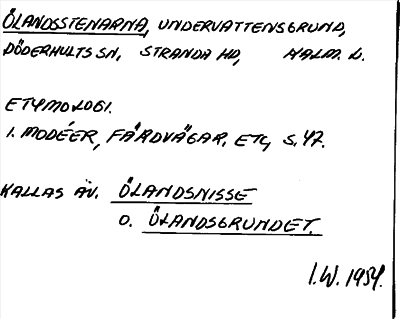 ÖLANDSSTENARNA, UNDERVATTENSGRUND,
DÖDERHULTS SN, STRANDA HD, KALM. L.
ETYMOLOGI.
I. MODÉER, FÄRDVÄGAR. ETC, S. 47.
KALLAS ÄV. ÖLANDSNISSE
O. ÖLANDSGRUNDET.
I.W. 1954.